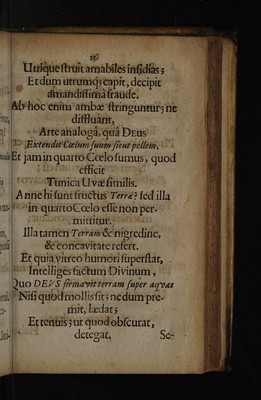 28
Utriq́ue struit amabiles insidias;
Et dum utrumq; capit, decipit
amandissimâ fraude.
Ab hoc enim ambæ stringuntur; ne
diffluant,
Arte analogâ, quâ DEUS
Extendit Cœlum suum sicut pellem.
Et jam in quarto Cœlo sumus, quod
efficit
Tunica Uvæ similis.
Anne hi sunt fructus Terræ? sed illa
in quarto Cœlo esse non per-
mittitur.
Illa tamen Terram & nigredine,
& concavitate refert.
Et quia vitreo humori superstat,
Intelliges factum Divinum,
Quo DEVS firmavit terram super aqvas
Nisi quod mollis sit; ne dum pre-
mit, lædat;
Et tenuis; ut quod obscurat,
detegat,
Se-